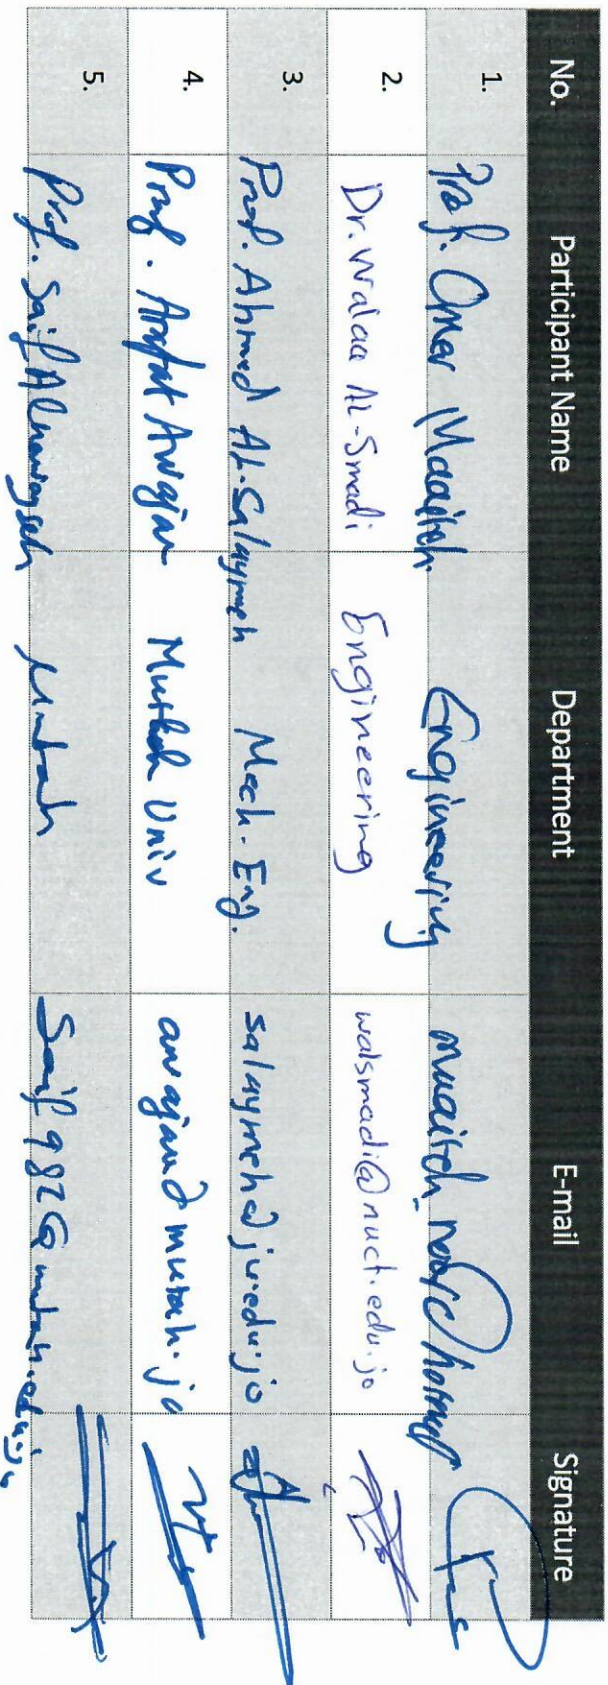 No. Participant Name Department E-mail Signature
1. Prof. Omar Maaitah Engineering
2. Dr. Walaa AL-Smadi Engineering walsmadi@nuct.edu.jo
3. Prof. Ahmed Al-Salaymeh Mech. Eng. salaymeh@ju.edu.jo
4. Prof. Arafat Awajan Mutah Univ awajan@mutah.jo
5. Prof. Saif Mutah Saif982@mutah.edu.jo